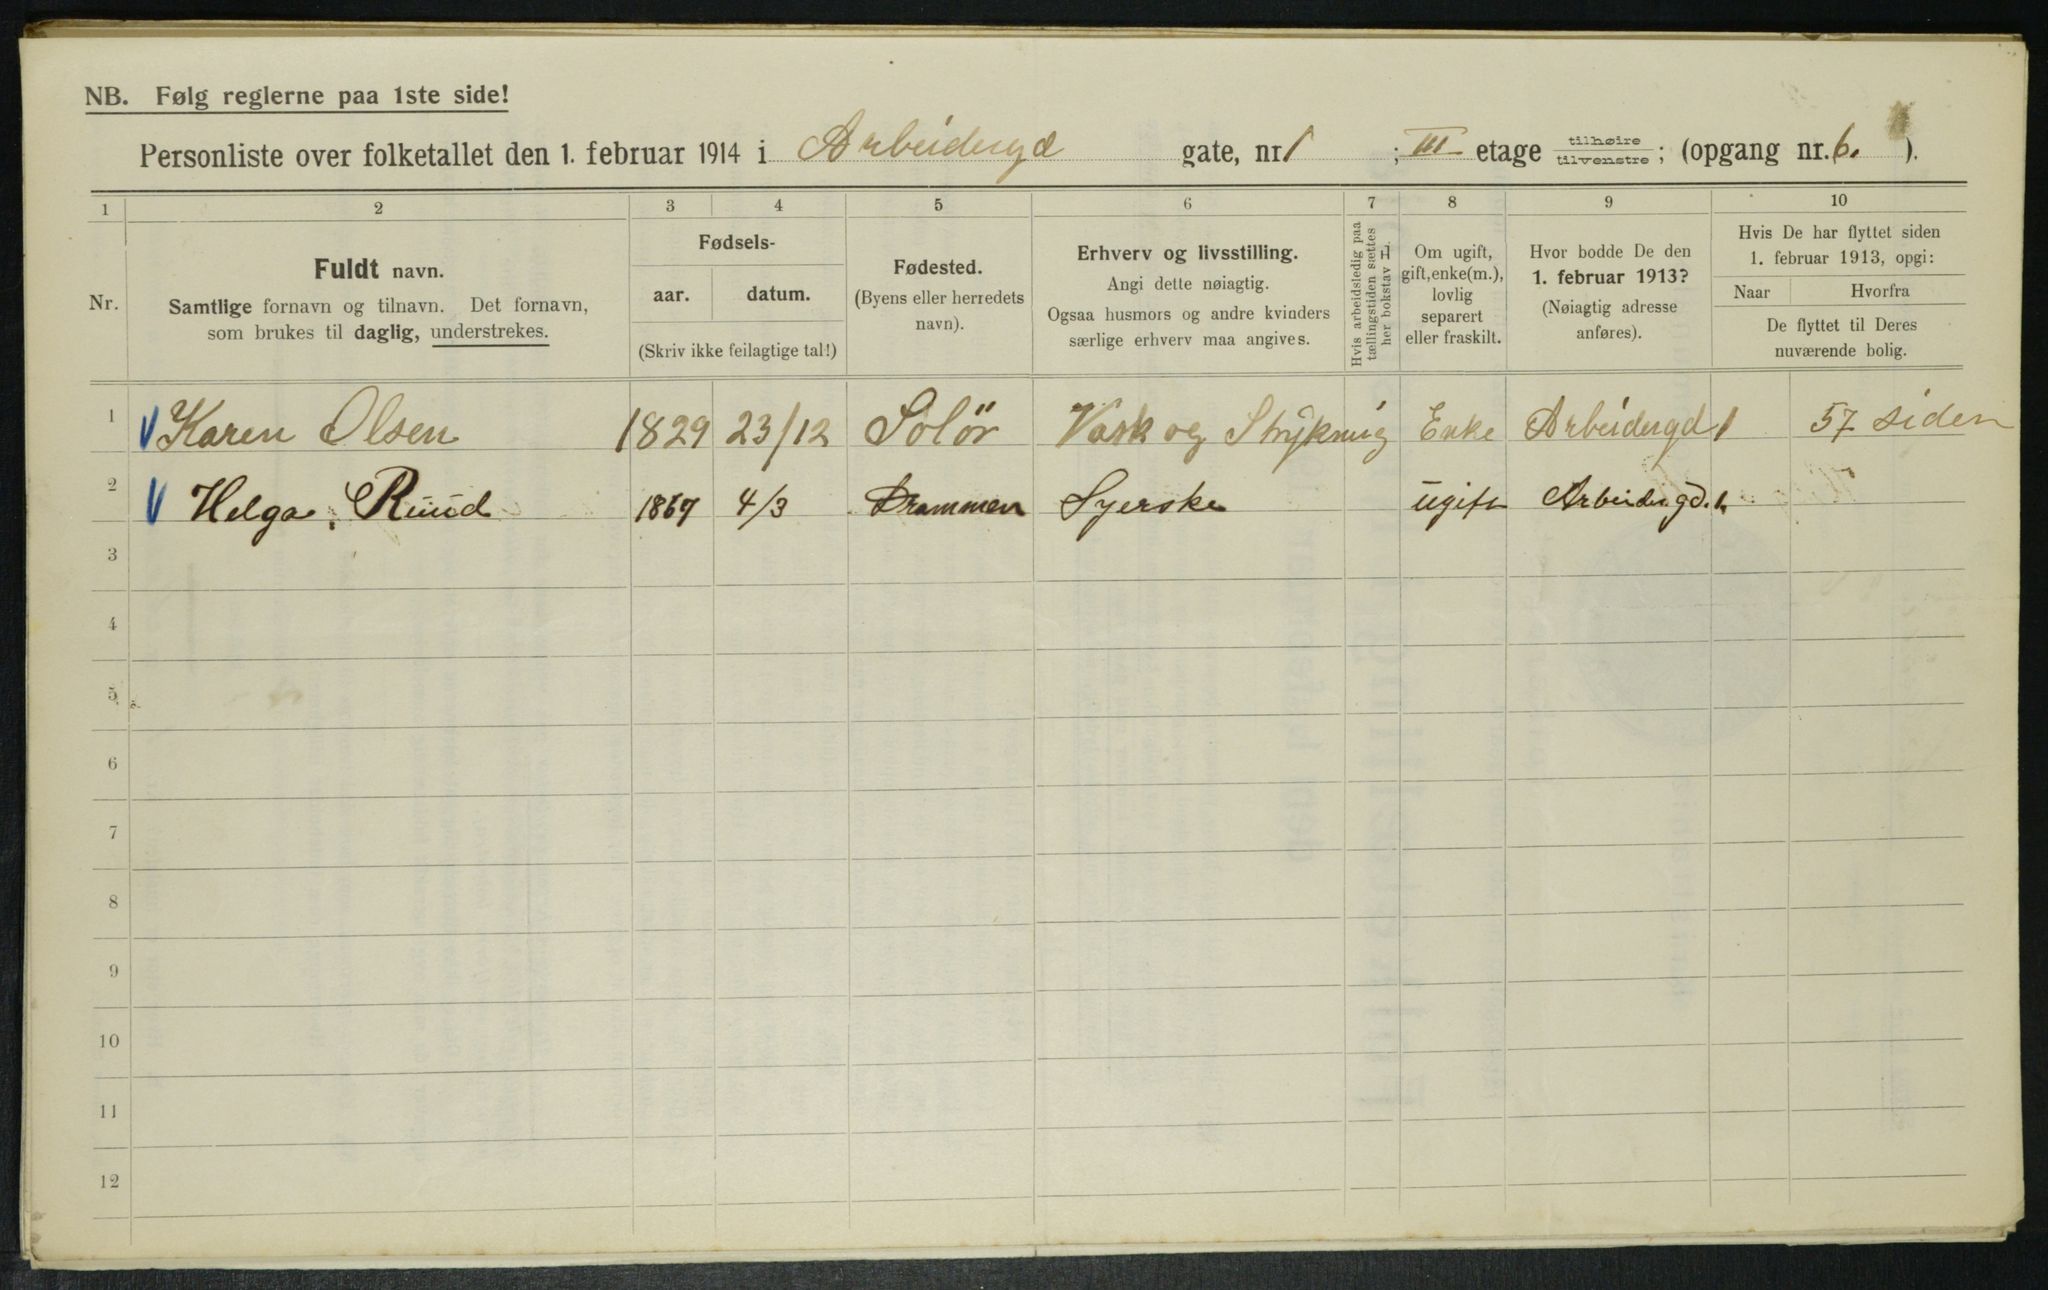 NB. Følg reglerne paa 1ste side!
Personliste over folketallet den 1. februar 1914 i Arbeidergd gate, nr. 1 ; III etage tilhøire/tilvenstre; (opgang nr. 6. ).
1 2 3 4 5 6 7 8 9 10
Nr.
Fuldt navn.
Samtlige fornavn og tilnavn. Det fornavn,
som brukes til daglig, understrekes.
Fødsels-
aar. datum.
(Skriv ikke feilagtige tal!)
Fødested.
(Byens eller herredets
navn).
Erhverv og livsstilling.
Angi dette nøiagtig.
Ogsaa husmors og andre kvinders
særlige erhverv maa angives.
Hvis arbeidsledig paa
tællingstiden sættes
her bokstav l
Om ugift,
gift, enke(m.),
lovlig
separert
eller fraskilt.
Hvor bodde De den
1. februar 1913?
(Nøiagtig adresse
anføres).
Hvis De har flyttet siden
1. februar 1913, opgi:
Naar Hvorfra
De flyttet til Deres
nuværende bolig.
1 Karen Olsen 1829 23/12 Solör Vask og Strykning Enke Arbeidergd 1 57 siden
2 Helga Ruud 1867 4/3 Drammen Syerske ugift Arbeidergd. 1.
3
4
5
6
7
8
9
10
11
12